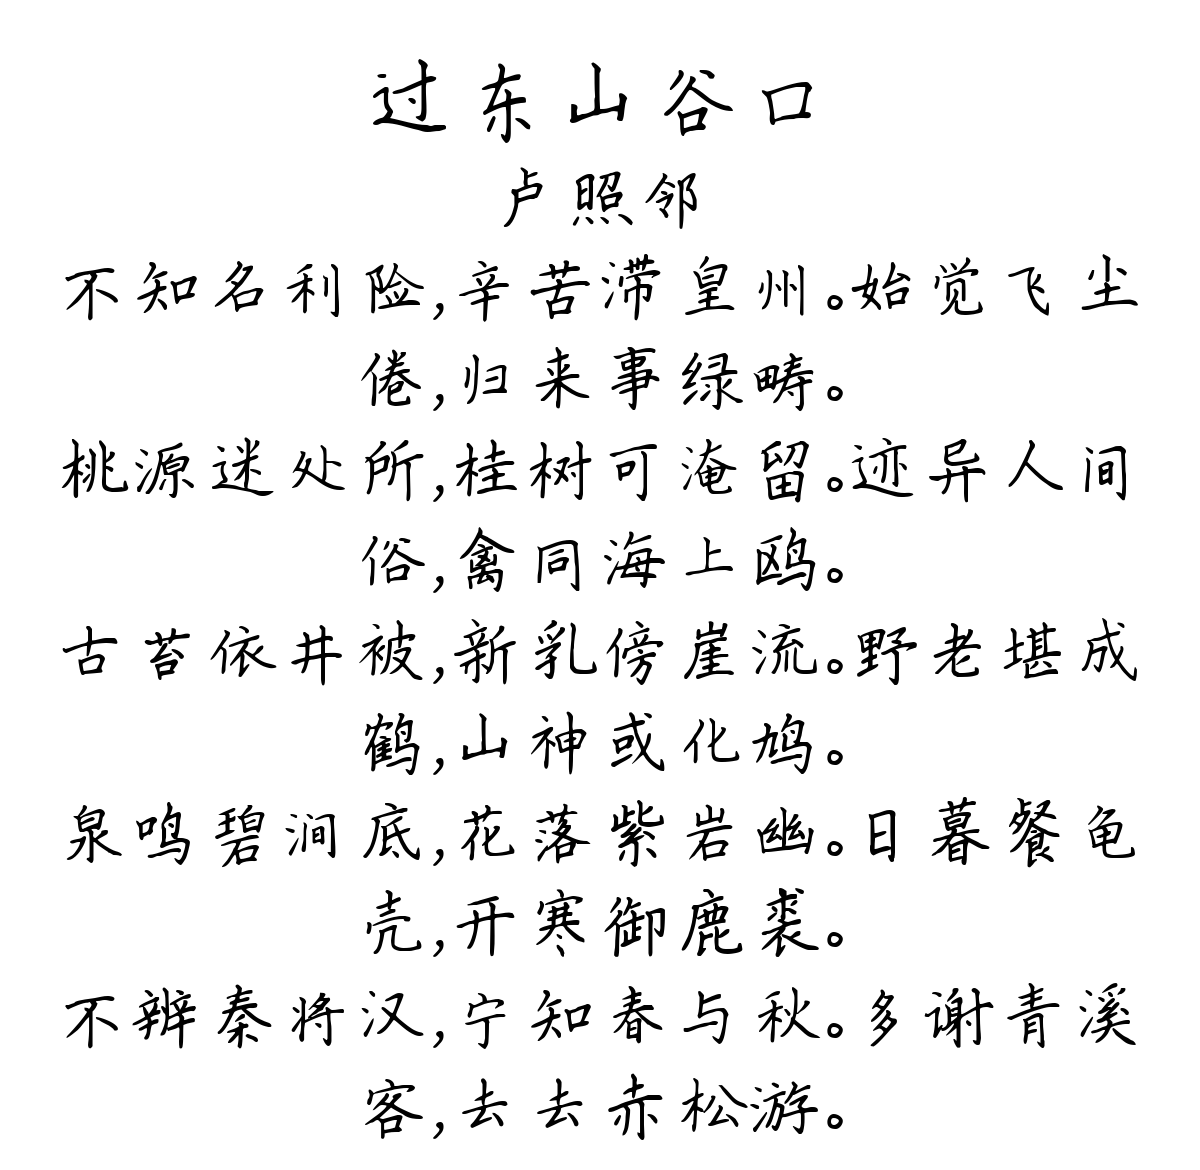 过东山谷口
卢照邻
不知名利险,辛苦滞皇州。始觉飞尘
倦,归来事绿畴。
桃源迷处所,桂树可淹留。迹异人间
俗,禽同海上鸥。
古苔依井被,新乳傍崖流。野老堪成
鹤,山神或化鸠。
泉鸣碧涧底,花落紫岩幽。日暮餐龟
壳,开寒御鹿裘。
不辨秦将汉,宁知春与秋。多谢青溪
客,去去赤松游。